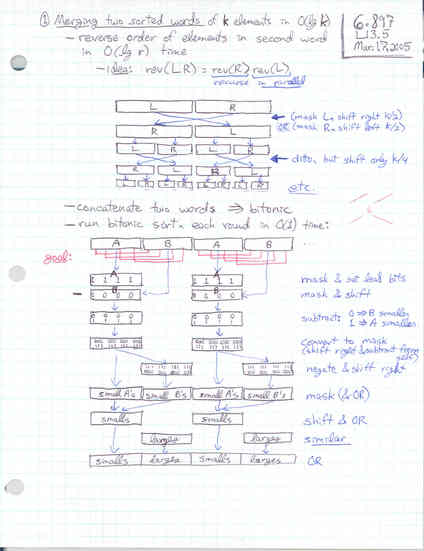 ① Merging two sorted words of k elements in O(lg k)
6.897
L13.5
Mar. 17, 2005
- reverse order of elements in second word
in O(lg r) time
- idea: rev(LR) = rev(R), rev(L),
recurse in parallel
L R
(mask L, shift right k/2)
OR (mask R, shift left k/2)
R L
L R L R
ditto, but shift only k/4
R L R L
etc.
- concatenate two words ⇒ bitonic
- run bitonic sort, each round in O(1) time:
A B A B ...
goal:
A A
1 1 1 1 1 1
mask & set lead bits
B B
0 0 0 0
mask & shift
subtract: 0 ⇒ B smaller
1 ⇒ A smaller
convert to mask
(shift right & subtract from
negate & shift right
small A's small B's small A's small B's
mask (& OR)
smalls smalls
shift & OR
larges larges
similar
smalls larges smalls larges
OR